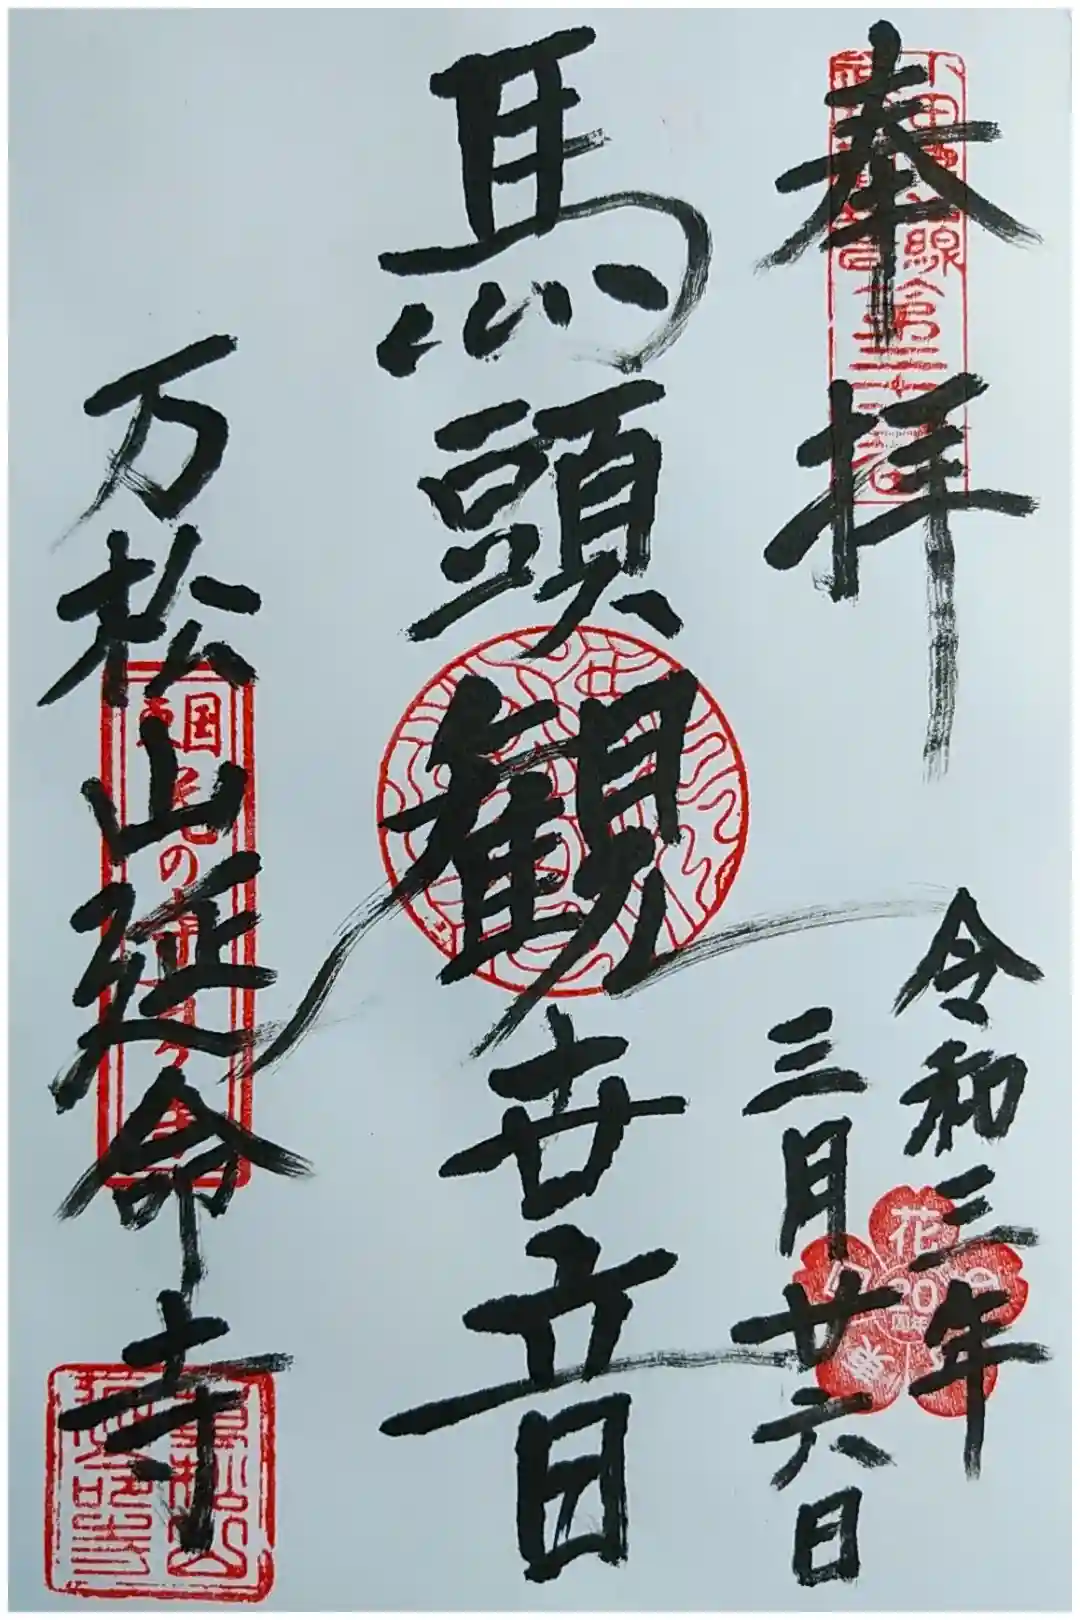 奉拝
令和三年
三月廿六日
馬頭観世音
万松山延命寺
花
20